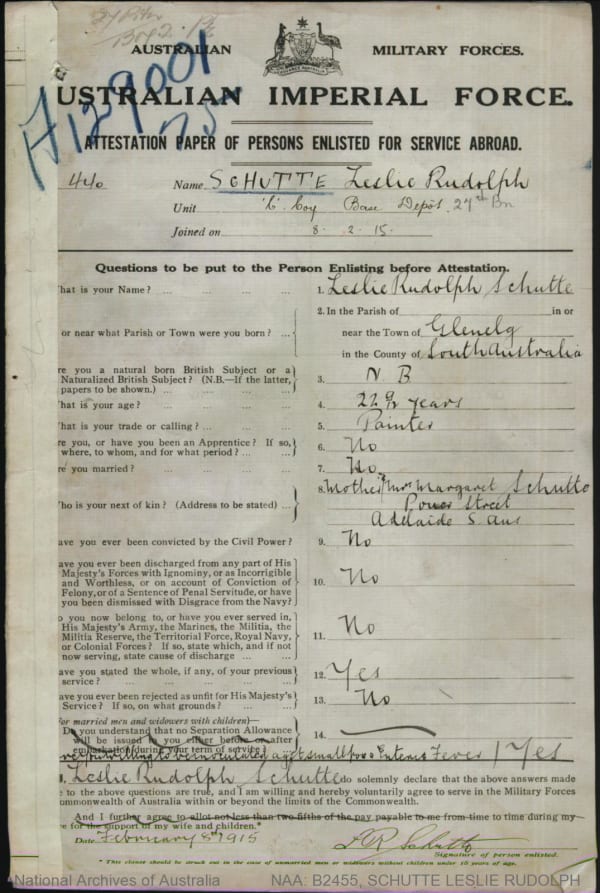 AUSTRALIAN MILITARY FORCES.
USTRALIAN IMPERIAL FORCE.
A129001
ATTESTATION PAPER OF PERSONS ENLISTED FOR SERVICE ABROAD.
440 Name SCHUTTE Leslie Rudolph
Unit 'C' Coy Base Depôt 27th Bn
Joined on 8. 2. 15.
Questions to be put to the Person Enlisting before Attestation.
hat is your Name? ... ... ... ... 1. Leslie Rudolph Schutte
2. In the Parish of in or
or near what Parish or Town were you born? ... near the Town of Glenelg
in the County of South Australia
re you a natural born British Subject or a
Naturalized British Subject? (N.B.—If the latter, 3. N. B
papers to be shown.) ... ... ...
hat is your age? ... ... ... ... 4. 22 9/12 years
hat is your trade or calling? ... ... ... 5. Painter
re you, or have you been an Apprentice? If so, 6. No
where, to whom, and for what period? ... ...
re you married? ... ... ... ... 7. No
8. Mother Mrs Margaret Schutte
ho is your next of kin? (Address to be stated) ... Street
Adelaide S. Aus
ave you ever been convicted by the Civil Power? 9. No
ave you ever been discharged from any part of His
Majesty's Forces with Ignominy, or as Incorrigible
and Worthless, or on account of Conviction of 10. No
Felony, or of a Sentence of Penal Servitude, or have
you been dismissed with Disgrace from the Navy?
o you now belong to, or have you ever served in,
His Majesty's Army, the Marines, the Militia, the
Militia Reserve, the Territorial Force, Royal Navy, 11. No
or Colonial Forces? If so, state which, and if not
now serving, state cause of discharge ... ...
ave you stated the whole, if any, of your previous 12. Yes
service? ... ... ... ...
ave you ever been rejected as unfit for His Majesty's 13. No
Service? If so, on what grounds? ... ...
For married men and widowers with children)—
Do you understand that no Separation Allowance
will be issued to you either before or after 14.
embarkation during your term of service?
you willing to be inoculated against small pox & Enteric Fever Yes
Leslie Rudolph Schutte do solemnly declare that the above answers made
e to the above questions are true, and I am willing and hereby voluntarily agree to serve in the Military Forces
ommonwealth of Australia within or beyond the limits of the Commonwealth.
And I further agree to allot not less than two-fifths of the pay payable to me from time to time during my
e for the support of my wife and children.*
Date February 8th 1915 L R Schutte
Signature of person enlisted.
* This clause should be struck out in the case of unmarried men or widowers without children under 18 years of age.
National Archives of Australia NAA: B2455, SCHUTTE LESLIE RUDOLPH